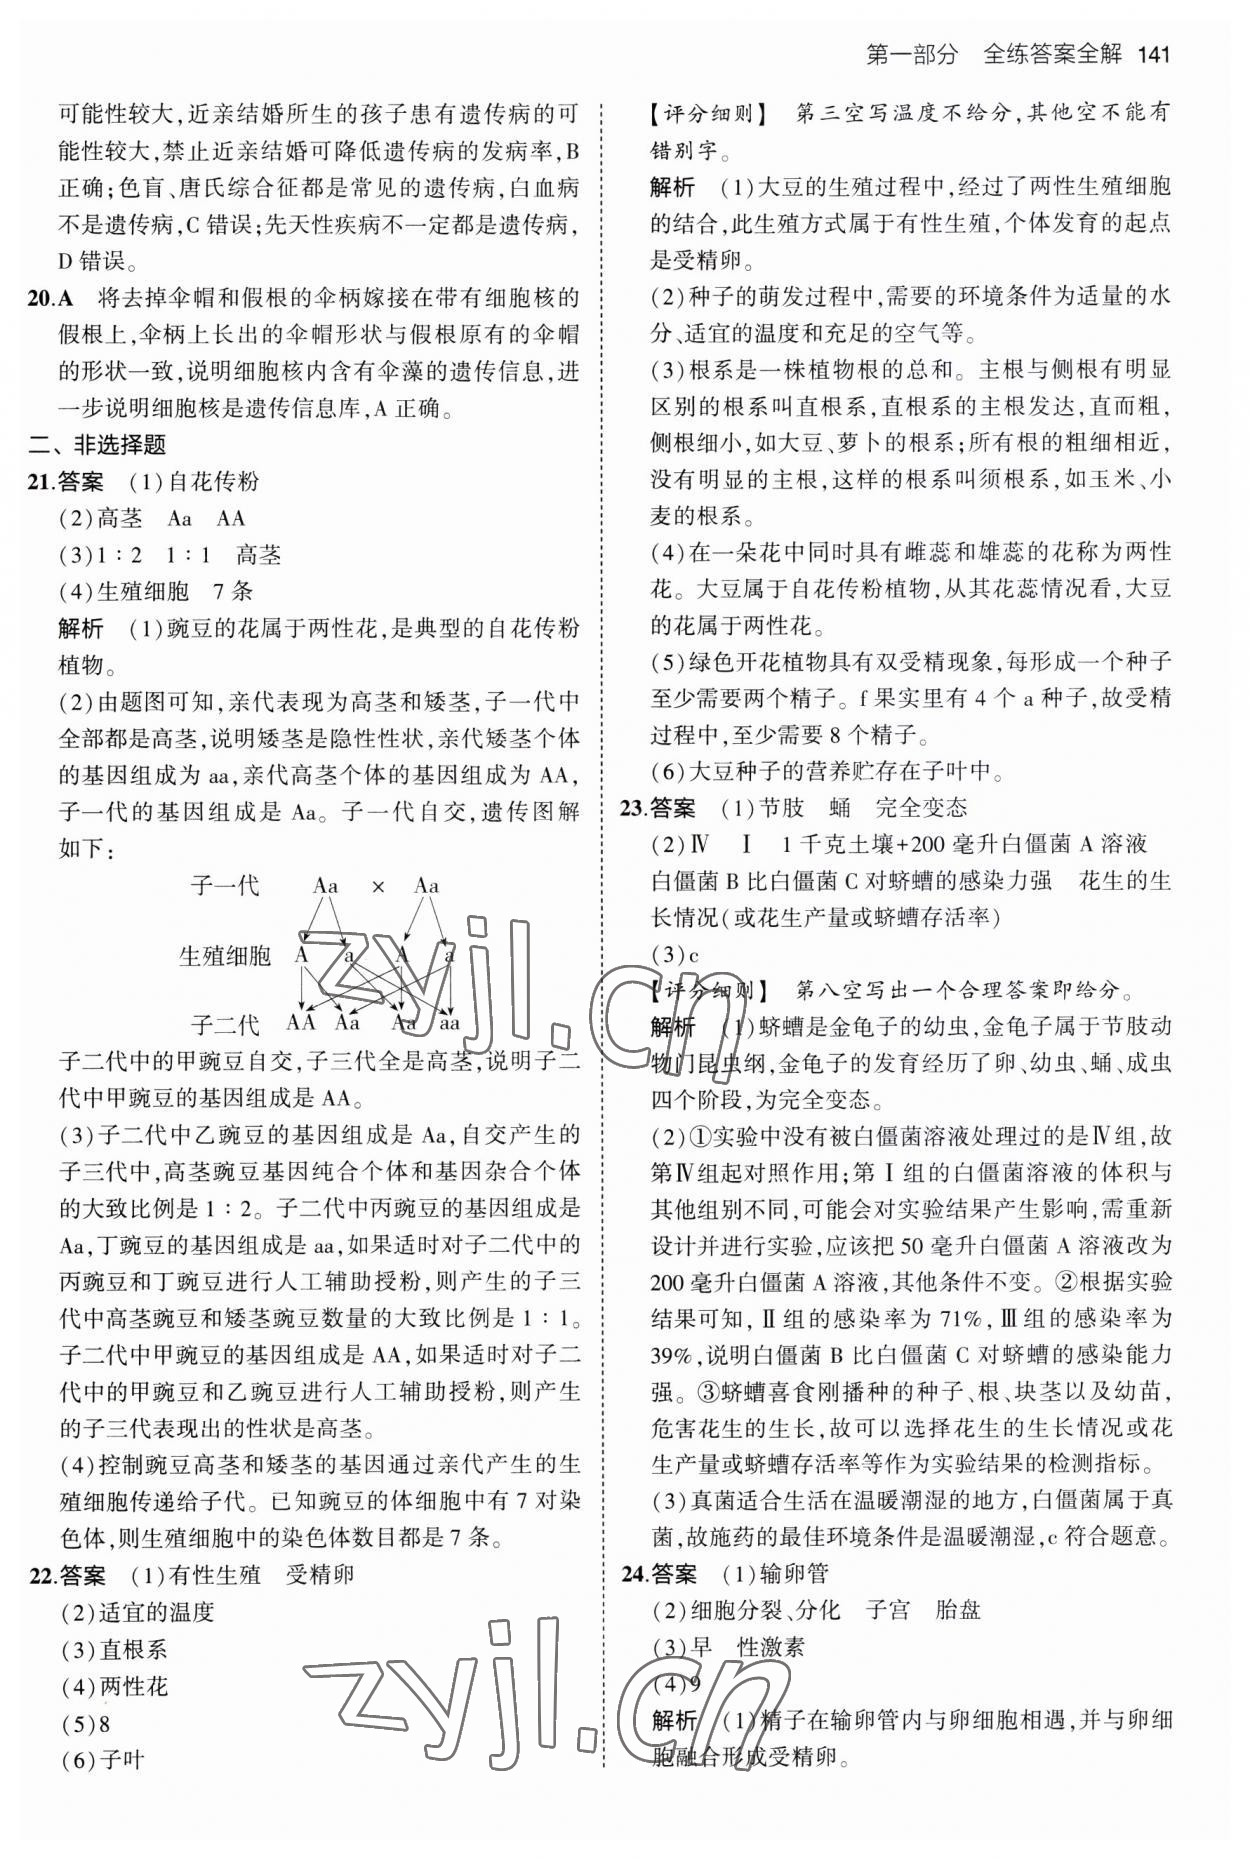 第一部分　全练答案全解 141
可能性较大,近亲结婚所生的孩子患有遗传病的可
能性较大,禁止近亲结婚可降低遗传病的发病率,B
正确;色盲、唐氏综合征都是常见的遗传病,白血病
不是遗传病,C错误;先天性疾病不一定都是遗传病,
D错误。
20.A　将去掉伞帽和假根的伞柄嫁接在带有细胞核的
假根上,伞柄上长出的伞帽形状与假根原有的伞帽
的形状一致,说明细胞核内含有伞藻的遗传信息,进
一步说明细胞核是遗传信息库,A正确。
二、非选择题
21.答案　(1)自花传粉
(2)高茎　Aa　AA
(3)1∶2　1∶1　高茎
(4)生殖细胞　7条
解析　(1)豌豆的花属于两性花,是典型的自花传粉
植物。
(2)由题图可知,亲代表现为高茎和矮茎,子一代中
全部都是高茎,说明矮茎是隐性性状,亲代矮茎个体
的基因组成为aa,亲代高茎个体的基因组成为AA,
子一代的基因组成是Aa。子一代自交,遗传图解
如下:
子一代　Aa　×　Aa
生殖细胞　A　a　A　a
子二代　AA　Aa　Aa　aa
子二代中的甲豌豆自交,子三代全是高茎,说明子二
代中甲豌豆的基因组成是AA。
(3)子二代中乙豌豆的基因组成是Aa,自交产生的
子三代中,高茎豌豆基因纯合个体和基因杂合个体
的大致比例是1∶2。子二代中丙豌豆的基因组成是
Aa,丁豌豆的基因组成是aa,如果适时对子二代中的
丙豌豆和丁豌豆进行人工辅助授粉,则产生的子三
代中高茎豌豆和矮茎豌豆数量的大致比例是1∶1。
子二代中甲豌豆的基因组成是AA,如果适时对子二
代中的甲豌豆和乙豌豆进行人工辅助授粉,则产生
的子三代表现出的性状是高茎。
(4)控制豌豆高茎和矮茎的基因通过亲代产生的生
殖细胞传递给子代。已知豌豆的体细胞中有7对染
色体,则生殖细胞中的染色体数目都是7条。
22.答案　(1)有性生殖　受精卵
(2)适宜的温度
(3)直根系
(4)两性花
(5)8
(6)子叶
【评分细则】　第三空写温度不给分,其他空不能有
错别字。
解析　(1)大豆的生殖过程中,经过了两性生殖细胞
的结合,此生殖方式属于有性生殖,个体发育的起点
是受精卵。
(2)种子的萌发过程中,需要的环境条件为适量的水
分、适宜的温度和充足的空气等。
(3)根系是一株植物根的总和。主根与侧根有明显
区别的根系叫直根系,直根系的主根发达,直而粗,
侧根细小,如大豆、萝卜的根系;所有根的粗细相近,
没有明显的主根,这样的根系叫须根系,如玉米、小
麦的根系。
(4)在一朵花中同时具有雌蕊和雄蕊的花称为两性
花。大豆属于自花传粉植物,从其花蕊情况看,大豆
的花属于两性花。
(5)绿色开花植物具有双受精现象,每形成一个种子
至少需要两个精子。f果实里有4个a种子,故受精
过程中,至少需要8个精子。
(6)大豆种子的营养贮存在子叶中。
23.答案　(1)节肢　蛹　完全变态
(2)Ⅳ　Ⅰ　1千克土壤+200毫升白僵菌A溶液
白僵菌B比白僵菌C对蛴螬的感染力强　花生的生
长情况(或花生产量或蛴螬存活率)
(3)c
【评分细则】　第八空写出一个合理答案即给分。
解析　(1)蛴螬是金龟子的幼虫,金龟子属于节肢动
物门昆虫纲,金龟子的发育经历了卵、幼虫、蛹、成虫
四个阶段,为完全变态。
(2)①实验中没有被白僵菌溶液处理过的是Ⅳ组,故
第Ⅳ组起对照作用;第Ⅰ组的白僵菌溶液的体积与
其他组别不同,可能会对实验结果产生影响,需重新
设计并进行实验,应该把50毫升白僵菌A溶液改为
200毫升白僵菌A溶液,其他条件不变。②根据实验
结果可知,Ⅱ组的感染率为71%,Ⅲ组的感染率为
39%,说明白僵菌B比白僵菌C对蛴螬的感染能力
强。③蛴螬喜食刚播种的种子、根、块茎以及幼苗,
危害花生的生长,故可以选择花生的生长情况或花
生产量或蛴螬存活率等作为实验结果的检测指标。
(3)真菌适合生活在温暖潮湿的地方,白僵菌属于真
菌,故施药的最佳环境条件是温暖潮湿,c符合题意。
24.答案　(1)输卵管
(2)细胞分裂、分化　子宫　胎盘
(3)早　性激素
(4)9
解析　(1)精子在输卵管内与卵细胞相遇,并与卵细
胞融合形成受精卵。
zyjl.cn
zyjl.cn